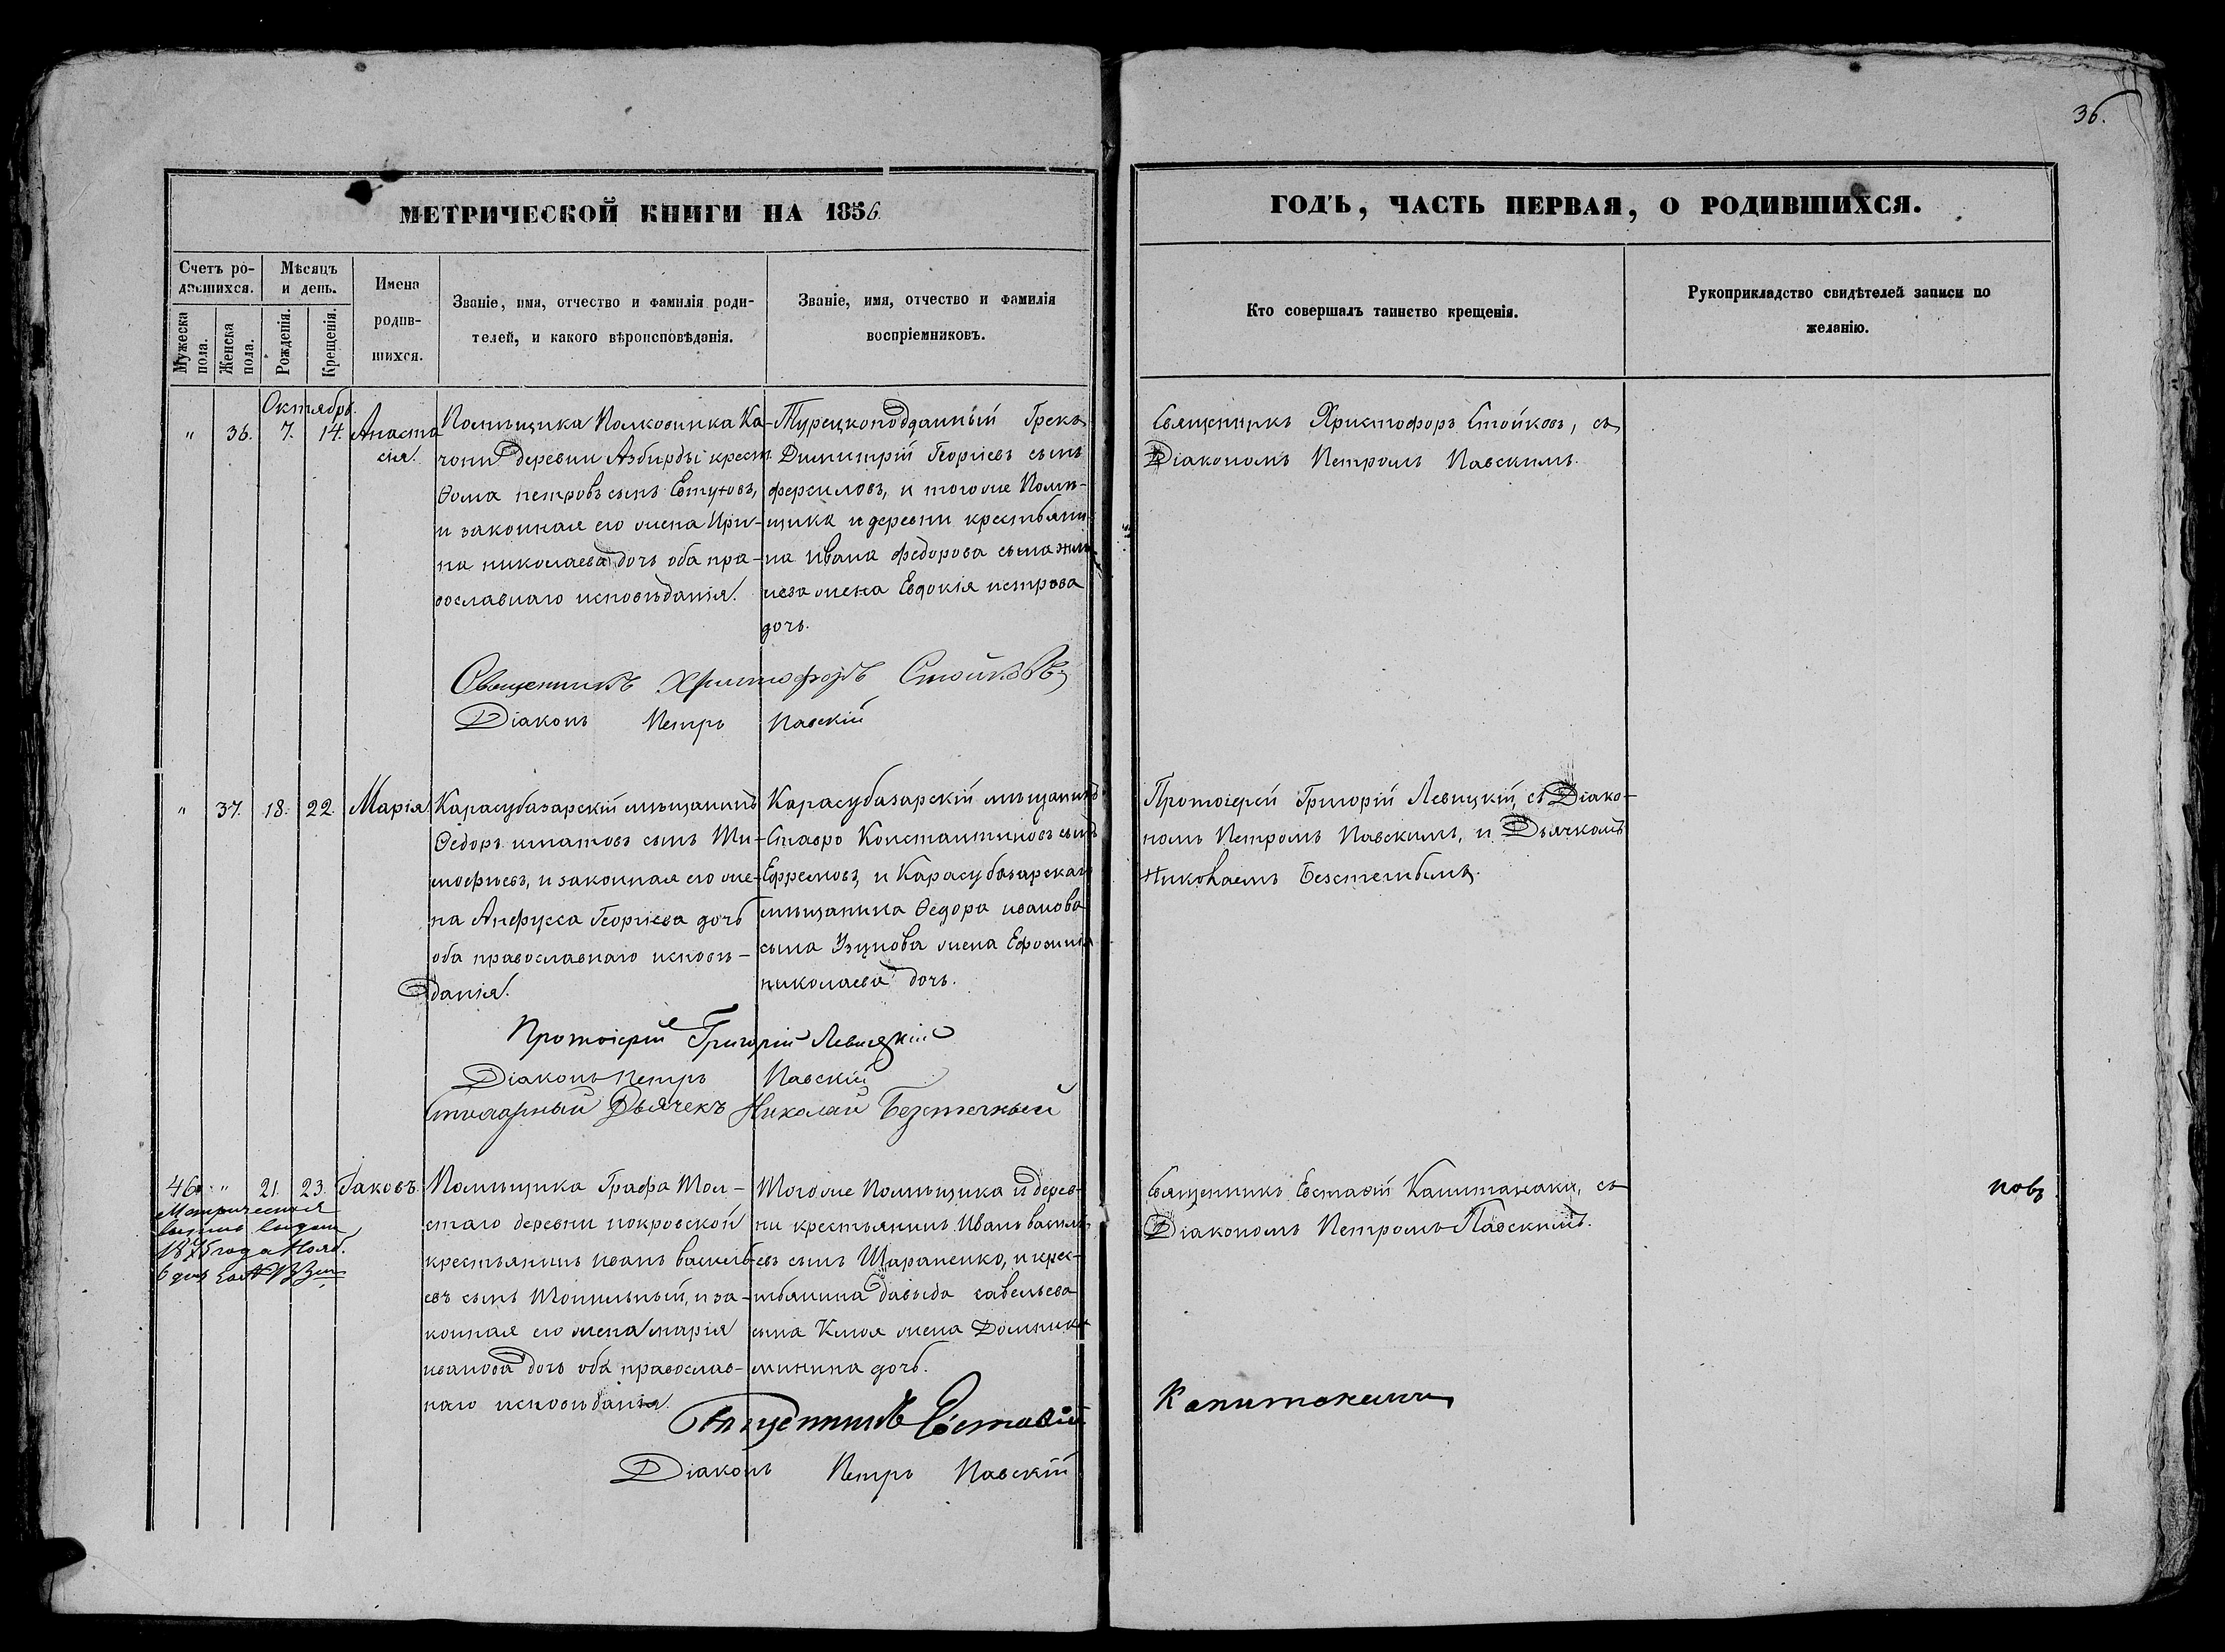 36.
МЕТРИЧЕСКОЙ КНИГИ НА 1856
ГОДЪ, ЧАСТЬ ПЕРВАЯ, О РОДИВШИХСЯ.
Счетъ ро-
дившихся.
Мужеска пола.
Женска пола.
Мѣсяцъ
и день.
Рожденія.
Крещенія.
Имена
родив-
шихся.
Званіе, имя, отчество и фамилія роди-
телей, и какого вѣроисповѣданія.
Званіе, имя, отчество и фамилія
воспріемниковъ.
Кто совершалъ таинство крещенія.
Рукоприкладство свидѣтелей записи по
желанію.
Октябрь.
" 36. 7. 14. Анаста
сія.
Помѣщика Полковника Ка-
чони деревни Азбирды крест.
Ѳома петровъ сынъ Евтуховъ,
и законная его жена Ири-
на николаева дочь оба пра-
вославнаго исповѣданія.
Турецкоподданный Грекъ
Димитрій Георгіевъ сынъ
и тогоже Помѣ-
щика и деревни крестьяни-
на Ивана федорова сына
жена Евдокія петрова
дочь.
Священникъ Христофоръ Стойковъ, съ
Діакономъ Петромъ Павскимъ.
Священникъ Христофоръ Стойковъ
Діаконъ Петръ Павскій
" 37. 18. 22. Марія
Карасубазарскій мѣщанинъ
Ѳедоръ игнатовъ сынъ Ти-
моѳѣевъ, и законная его же-
на Анфусса Георгіева дочь
оба православнаго исповѣ-
данія.
Карасубазарскій мѣщанинъ
Ставро Константиновъ сынъ
Ефремовъ, и Карасубазарскаго
мѣщанина Ѳедора иванова
сына Узунова жена Ефросинія
николаева дочь.
Протоіерей Григорій Левицкій, съ Діако-
номъ Петромъ Павскимъ, и Дьячкомъ
Николаемъ
Протоіерей Григорій Левицкій
Діаконъ Петръ Павскій
Дьячекъ Николай
46. " 21. 23. Іаковъ.
Помѣщика Графа Тол-
стаго деревни покровской
крестьянинъ иванъ василь-
евъ сынъ и за-
конная его жена марія
иванова дочь оба православ-
наго исповѣданія.
Тогоже Помѣщика и дерев-
ни крестьянинъ Иванъ василь-
евъ сынъ Шарапенко, и крес-
тьянина давыда савельева
сына жена Домника
минина дочь.
Священникъ Евстафій Капитанаки, съ
Діакономъ Петромъ Павскимъ.
Метрическая
Священникъ Евстафій
Капитанаки
Діаконъ Петръ Павскій